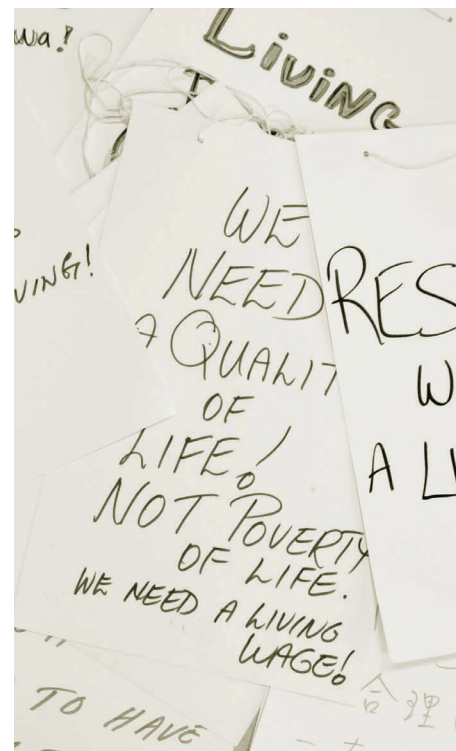 Living
WE
NEED
A QUALIT
OF
LIFE!
NOT POVERTY
OF LIFE.
WE NEED A LIVING
WAGE!
VING!
RES
W
A LI
TO HAVE
合理
wa!